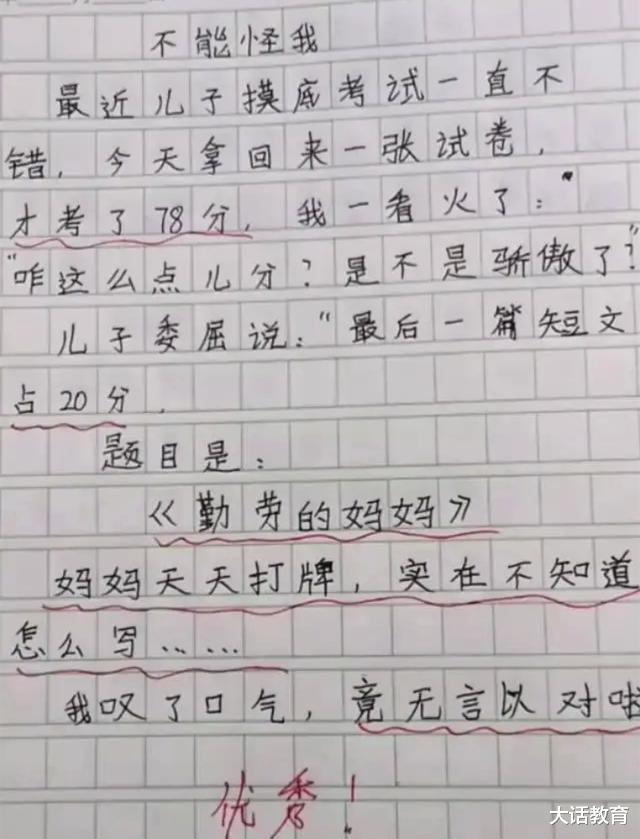 不能怪我
最近儿子摸底考试一直不
错，今天拿回来一张试卷，
才考了78分，我一看火了："
"咋这么点儿分？是不是骄傲了？"
儿子委屈说："最后一篇短文
占20分，
题目是：
《勤劳的妈妈》
妈妈天天打牌，实在不知道
怎么写……
我叹了口气，竟无言以对啦
优秀！
大话教育